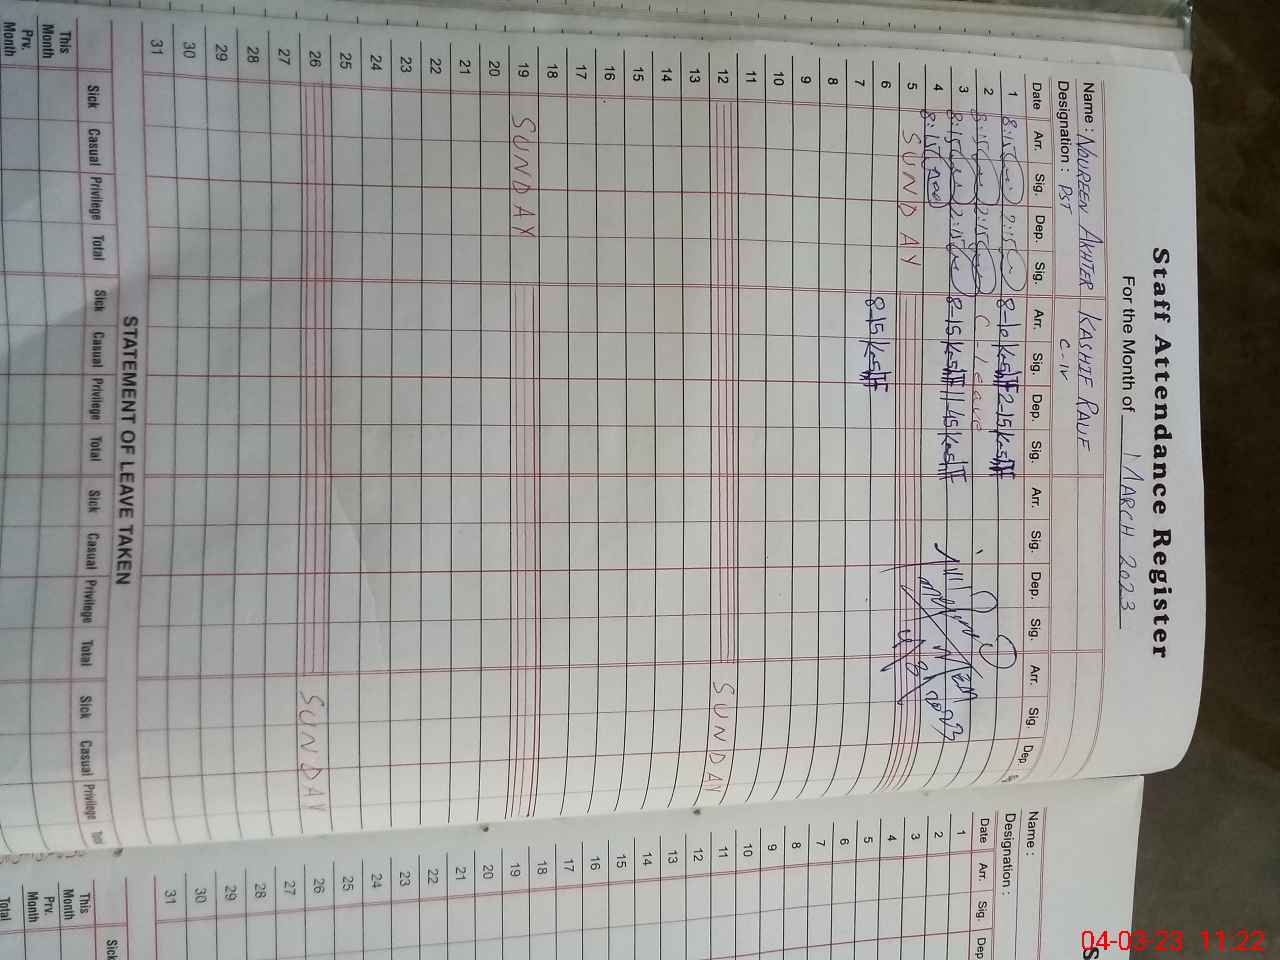 Staff Attendance Register
For the Month of 1 MARCH 2023
Name : NOUREEN AKHTER KASHIF RAUF
Designation : PST C-IV
Date Arr. Sig. Dep. Sig. Arr. Sig. Dep. Sig. Arr. Sig. Dep. Sig. Arr. Sig. Dep.
1 8:15 2:15 8-10 Kashif 2-15 Kashif
2 8:15 2:15 C-leave
3 8:15 2:15 8-15 Kashif 11-45 Kashif
4 8:15
5 SUNDAY
6
7 8-15 Kashif
8
9
10
11
12 SUNDAY
13
14
15
16
17
18
19 SUNDAY
20
21
22
23
24
25
26 SUNDAY
27
28
29
30
31
STATEMENT OF LEAVE TAKEN
Sick Casual Privilege Total Sick Casual Privilege Total Sick Casual Privilege Total Sick Casual Privilege Total
This Month
Prv. Month
S
Name :
Designation :
Date Arr. Sig. Dep
1
2
3
4
5
6
7
8
9
10
11
12
13
14
15
16
17
18
19
20
21
22
23
24
25
26
27
28
29
30
31
Sick
This Month
Prv. Month
Total
04-03-23 11:22